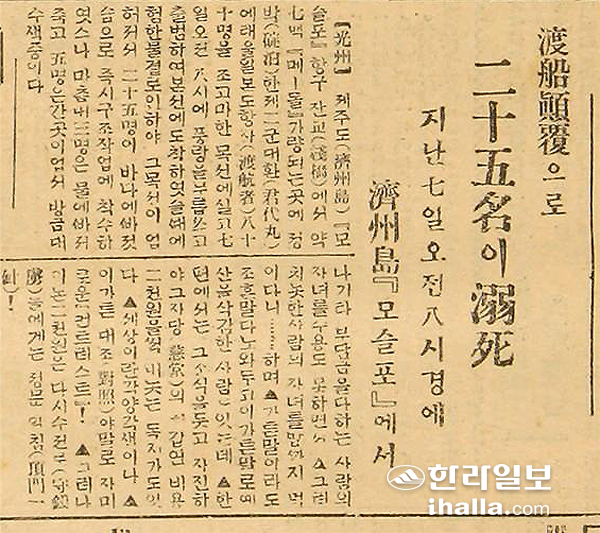 渡船顚覆으로
二十五名이溺死
지난七일오전八시경에
濟州島『모슬포』에서
【光州】 제주도(濟州島)『모
슬포』항구 잔교(棧橋)에서 약
七백『메ー돌』가량되는곳에 정
박(碇泊)한제二군대환(君代丸)
에태울일본도항자(渡航者)八十
十명을 조고마한 목선에실고七
일오전 八시에 풍랑을무릅쓰고
출범하여본선에도착하엿슬때에
험한물결로인하야 그목선이 업
허저서 二十五명이 바다에빠젓
슴으로 즉시구조작업에 착수하
엿스나 마츰내三명은 물에빠저
죽고 五명은간곳이업서 방금대
수색중이다
나기타 부담금을다하는 사람의
자녀를수용도 못하면서 ▲그리
치못한사람의 자녀를
이다니……하며 ▲가튼말이라도
조흔말다노와두고이가튼말로
산물삭감한 사람이잇는데 ▲한
편에서는 그소식을듯고 자진하
야그자당(慈堂)의 갑연 비용
二천원을썩 내놋는 독지가도잇
다 ▲세상이란각양각색이나 ▲
이가튼 대조(對照)야말로 자미
로운『컨트러스트』! ▲그러나
이눈二천원은 다시수전로(守錢
虜)들에게는 정문 일침(頂門一
針)!
한라일보
ihalla.com